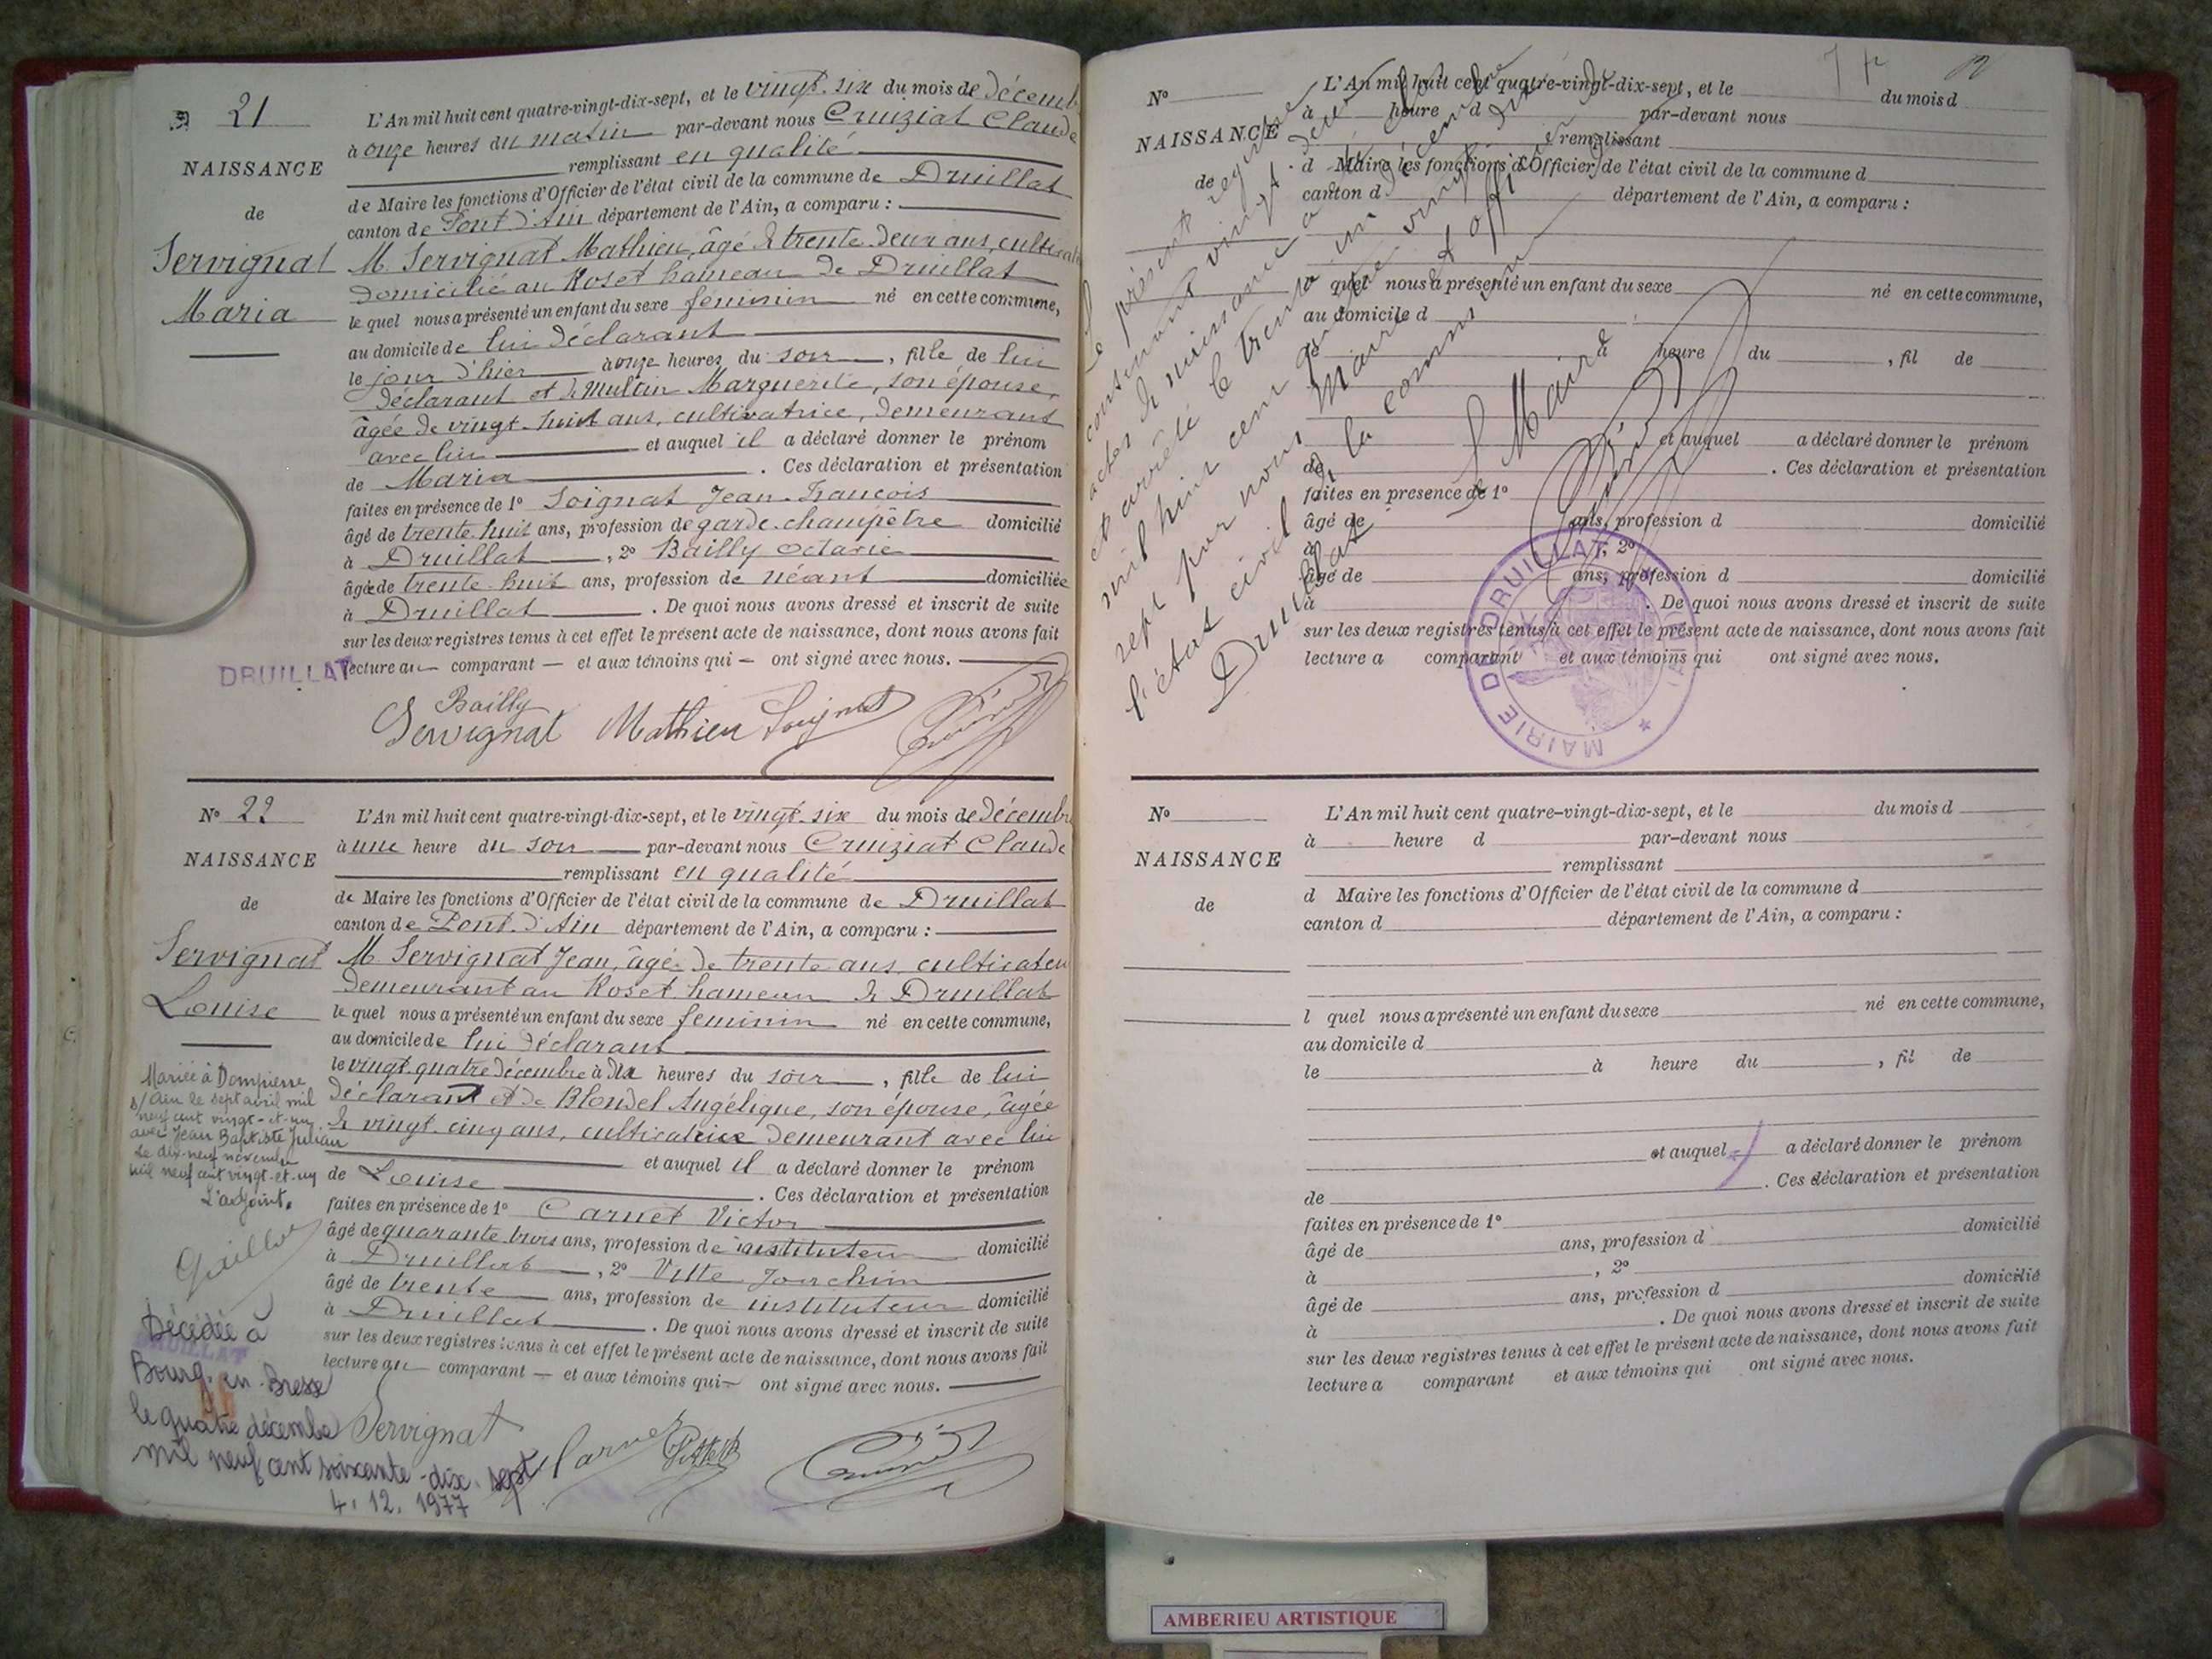 N° 21
NAISSANCE
de
Servignat
Maria
L'An mil huit cent quatre-vingt-dix-sept, et le vingt-six du mois de décemb
à onze heures du matin par-devant nous Cruiziat Claude
remplissant en qualité
de Maire les fonctions d'Officier de l'état civil de la commune de Druillat
canton de Pont d'Ain département de l'Ain, a comparu :
M Servignat Mathieu, âgé de trente deux ans, cultivate
domicilié au Roset hameau de Druillat
le quel nous a présenté un enfant du sexe feminin né en cette commune,
au domicile de lui déclarant
le jour d'hier à onze heures du soir, fille de lui
déclarant et de Multin Marguerite, son épouse,
âgée de vingt-huit ans, cultivatrice, demeurant
avec lui et auquel il a déclaré donner le prénom
de Maria. Ces déclaration et présentation
faites en présence de 1° Soignat Jean-François
âgé de trente huit ans, profession de garde-champêtre domicilié
à Druillat, 2° Bailly Octavie
âgée de trente-huit ans, profession de néant domiciliée
à Druillat. De quoi nous avons dressé et inscrit de suite
sur les deux registres tenus à cet effet le présent acte de naissance, dont nous avons fait
lecture au comparant — et aux témoins qui — ont signé avec nous.
DRUILLAT
Bailly
Servignat Mathieu Soignat
N° 22
NAISSANCE
de
Servignat
Louise
L'An mil huit cent quatre-vingt-dix-sept, et le vingt-six du mois de décembr
à une heure du soir par-devant nous Cruiziat Claude
remplissant en qualité
de Maire les fonctions d'Officier de l'état civil de la commune de Druillat
canton de Pont-d'Ain département de l'Ain, a comparu :
M Servignat Jean, âgé de trente ans, cultivateu
demeurant au Roset hameau de Druillat
le quel nous a présenté un enfant du sexe feminin né en cette commune,
au domicile de lui déclarant
le vingt quatre décembre à dix heures du soir, fille de lui
déclarant et de Blondel Angélique, son épouse, âgée
de vingt-cinq ans, cultivatrice demeurant avec lui
et auquel il a déclaré donner le prénom
de Louise. Ces déclaration et présentation
faites en présence de 1° Carnet Victor
âgé de quarante trois ans, profession de instituteur domicilié
à Druillat, 2° Vitte Joachim
âgé de trente ans, profession de instituteur domicilié
à Druillat. De quoi nous avons dressé et inscrit de suite
sur les deux registres tenus à cet effet le présent acte de naissance, dont nous avons fait
lecture au comparant — et aux témoins qui — ont signé avec nous.
Mariée à Dompierre
s/ Ain le sept avril mil
neuf cent vingt-et-un
avec Jean Baptiste Julian
Le dix-neuf novembre
mil neuf cent vingt-et-un
L'adjoint.
Décédée à
DRUILLAT
Bourg-en-Bresse
le quatre décembre
mil neuf cent soixante-dix-sept
4.12.1977
Servignat Carnet Vitte
N°
NAISSANCE
de
L'An mil huit cent quatre-vingt-dix-sept, et le du mois d
à heure d par-devant nous
remplissant
d Maire les fonctions d'Officier de l'état civil de la commune d
canton d département de l'Ain, a comparu :
l quel nous a présenté un enfant du sexe né en cette commune,
au domicile d
le à heure du , fil de
et auquel a déclaré donner le prénom
de . Ces déclaration et présentation
faites en présence de 1°
âgé de ans, profession d domicilié
à , 2°
âgé de ans, profession d domicilié
à . De quoi nous avons dressé et inscrit de suite
sur les deux registres tenus à cet effet le présent acte de naissance, dont nous avons fait
lecture a comparant et aux témoins qui ont signé avec nous.
Le présent registre
contenant vingt deux
actes de naissance a été clos
et arrêté le trente un décembre
mil huit cent quatre vingt dix
sept par nous Maire et officier de
l'état civil de la commune de
Druillat
Le Maire
MAIRIE DE DRUILLAT
N°
NAISSANCE
de
L'An mil huit cent quatre-vingt-dix-sept, et le du mois d
à heure d par-devant nous
remplissant
d Maire les fonctions d'Officier de l'état civil de la commune d
canton d département de l'Ain, a comparu :
l quel nous a présenté un enfant du sexe né en cette commune,
au domicile d
le à heure du , fil de
et auquel a déclaré donner le prénom
de . Ces déclaration et présentation
faites en présence de 1°
âgé de ans, profession d domicilié
à , 2°
âgé de ans, profession d domicilié
à . De quoi nous avons dressé et inscrit de suite
sur les deux registres tenus à cet effet le présent acte de naissance, dont nous avons fait
lecture a comparant et aux témoins qui ont signé avec nous.
AMBERIEU ARTISTIQUE